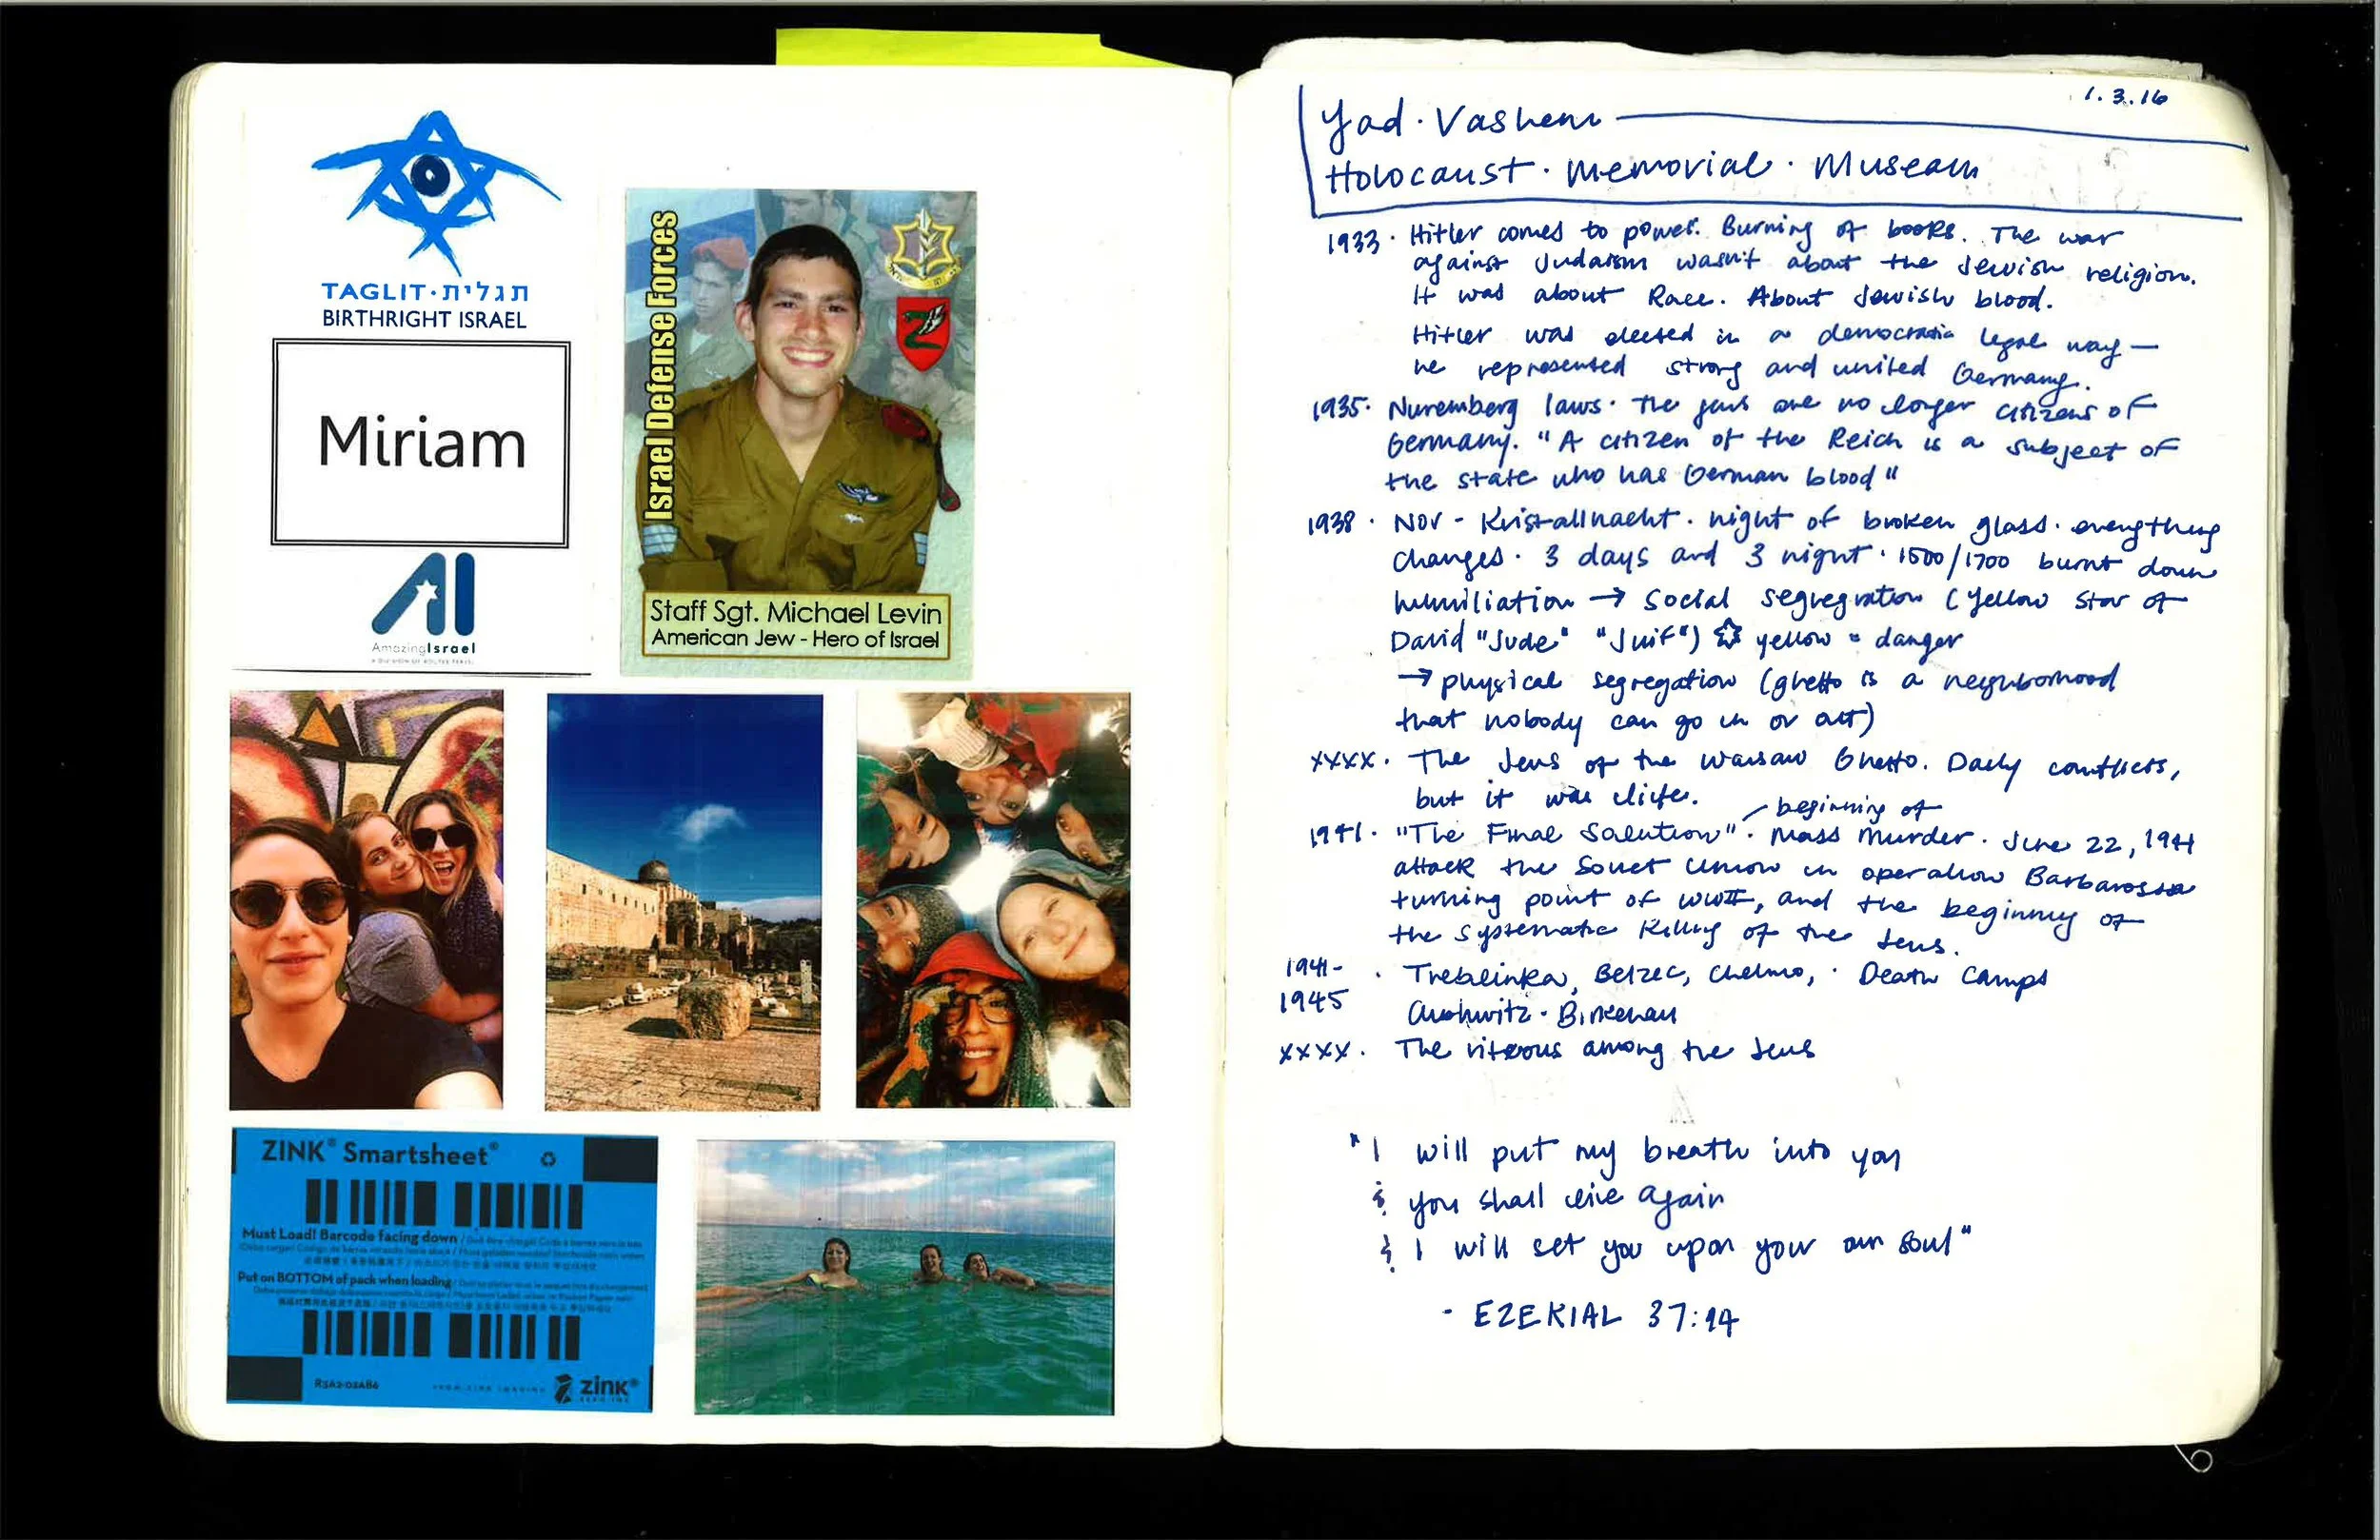 TAGLIT · תגלית
BIRTHRIGHT ISRAEL
Miriam
AI
AmazingIsrael
Israel Defense Forces
Staff Sgt. Michael Levin
American Jew - Hero of Israel
ZINK® Smartsheet®
Must Load! Barcode facing down
Put on BOTTOM of pack when loading
zink®
1.3.16
Yad · Vashem
Holocaust · Memorial · Museum
1933 · Hitler comes to power. Burning of books. The war
against Judaism wasn't about the Jewish religion.
It was about Race. About Jewish blood.
Hitler was elected in a democratic legal way —
he represented strong and united Germany.
1935 · Nuremberg laws · The jews are no longer citizens of
Germany. "A citizen of the Reich is a subject of
the state who has German blood"
1938 · Nov - Kristallnacht · night of broken glass · everything
changes · 3 days and 3 night · 1500/1700 burnt down
humiliation → social segregration (yellow star of
David "Jude" "Juif") ✡ yellow = danger
→ physical segregation (ghetto is a neighborhood
that nobody can go in or out)
xxxx · The Jews of the Warsaw Ghetto. Daily conflicts,
but it was life.
beginning of
1941 · "The Final Solution" · Mass Murder · June 22, 1941
attack the Soviet Union in operation Barbarossa
turning point of WWII, and the beginning of
the systematic killing of the Jews.
1941-
1945 · Treblinka, Belzec, Chelmo, · Death Camps
Aushwitz · Birkenau
xxxx · The among the Jews
"I will put my breath into you
& you shall live again
& I will set you upon your own soul"
- EZEKIAL 37:14